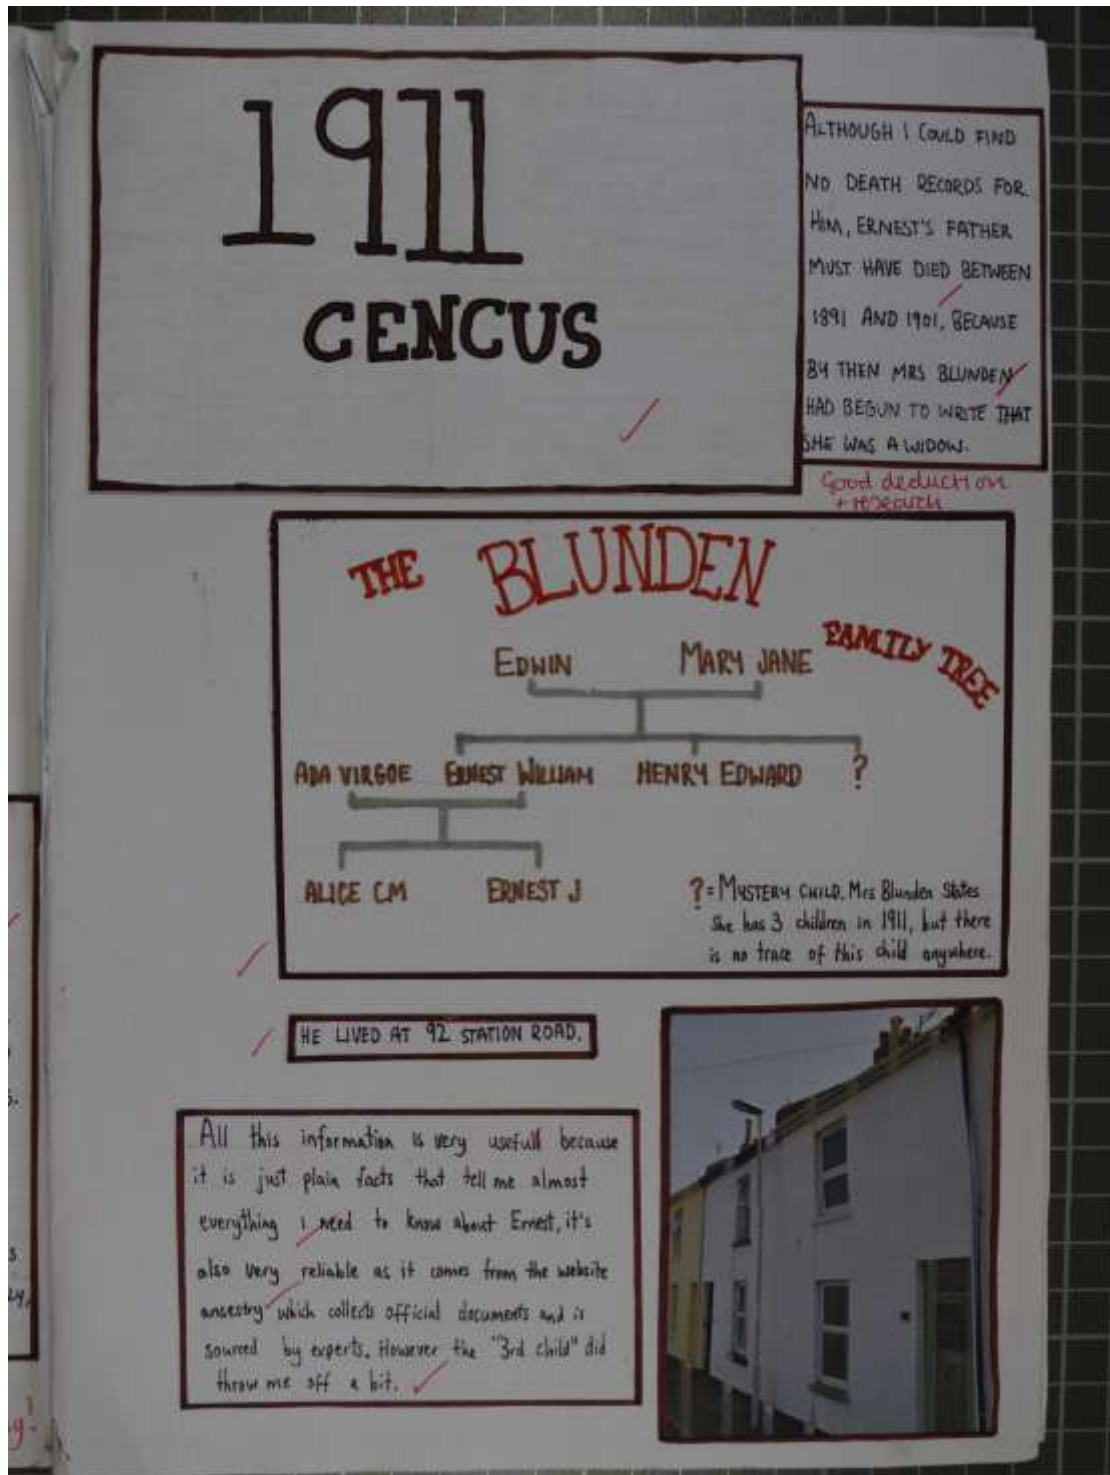 1911
CENCUS
ALTHOUGH I COULD FIND
NO DEATH RECORDS FOR
HIM, ERNEST'S FATHER
MUST HAVE DIED BETWEEN
1891 AND 1901, BECAUSE
BY THEN MRS BLUNDEN
HAD BEGUN TO WRITE THAT
SHE WAS A WIDOW.
Good deduction
+ research
THE BLUNDEN
FAMILY TREE
EDWIN MARY JANE
ADA VIRGOE ERNEST WILLIAM HENRY EDWARD ?
ALICE CM ERNEST J
? = MYSTERY CHILD. Mrs Blunden States
She has 3 children in 1911, but there
is no trace of this child anywhere.
HE LIVED AT 92 STATION ROAD.
All this information is very usefull because
it is just plain facts that tell me almost
everything i need to know about Ernest, it's
also very reliable as it comes from the website
ancestry which collects official documents and is
sourced by experts. However the "3rd child" did
throw me off a bit.